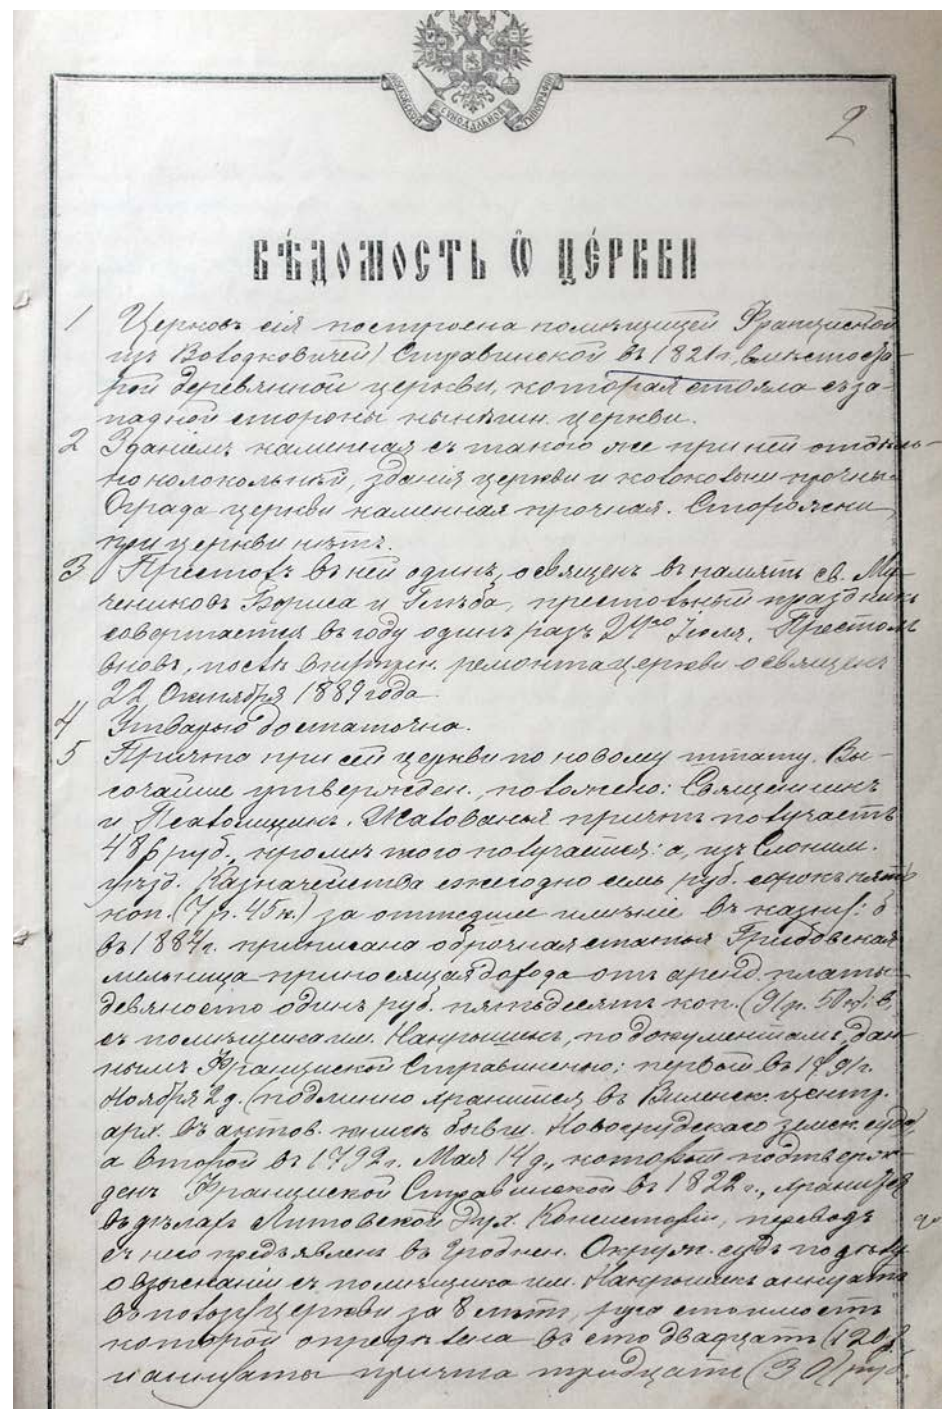 МОСКОВСКОЙ СѴНОДАЛЬНОЙ ТИПОГРАФІИ
2
ВѢ́ДОМОСТЬ Ѽ ЦЕ́РКВИ
1 Церковь сія построена помѣщицей Франциской
(из Володковичей) Стравинской въ 1821 г, вмѣсто ста-
рой деревянной церкви, которая стояла съ за-
падной стороны нынѣшн. церкви.
2 Зданіемъ каменная съ такою же при ней отдѣль-
но колокольней, зданія церкви и колокольни прочны.
Ограда церкви каменная прочная. Сторожки
при церкви нѣтъ.
3 Престолъ въ ней одинъ, освященъ въ память св. Му-
чениковъ Бориса и Глѣба, престольный праздникъ
совершается въ году одинъ разъ 24го Іюля, Престолъ
вновь, послѣ внутрен. ремонта церкви освященъ
22 Октября 1889 года.
4 Утварью достаточна.
5 Причта при сей церкви по новому штату, Вы-
сочайше утвержден., положено: Священникъ
и Псаломщикъ. Жалованья причтъ получаетъ
руб., кромѣ того получается: а, изъ Слоним.
уѣзд. Казначейства ежегодно семь руб. сорокъ пять
коп. (7 р. 45 к.) за отшедшее имѣніе въ казну: б
въ 1884 г. приписана оброчная статья Грибовская
мельница приносящая дохода отъ аренд. платы
девяносто одинъ руб. пятьдесятъ коп. (91 р. 50 к): в,
съ помѣщика им. Накрышекъ, по документамъ, дан-
нымъ Франциской Стравинскою; первый въ г.
Ноября 2 д. (подлинно хранится въ Виленск. центр.
арх. въ актов. книгѣ бывш. Новогрудскаго земск. суда,
а второй въ 1792 г. Мая 14 д., который подтверж-
денъ Франциской Стравинской въ 1822 г., хранится
въ дѣлахъ Литовской Дух. Консисторіи, переводъ
съ него предъявленъ въ Гроднен. Окружн. судъ по дѣлу
о взысканіи съ помѣщика им. Накрышекъ аннуата
въ пользу церкви за 8 лѣтъ, руга стоимость
которой опредѣлена въ сто двадцать (120 р.
и аннуаты причта тридцать (30) руб.